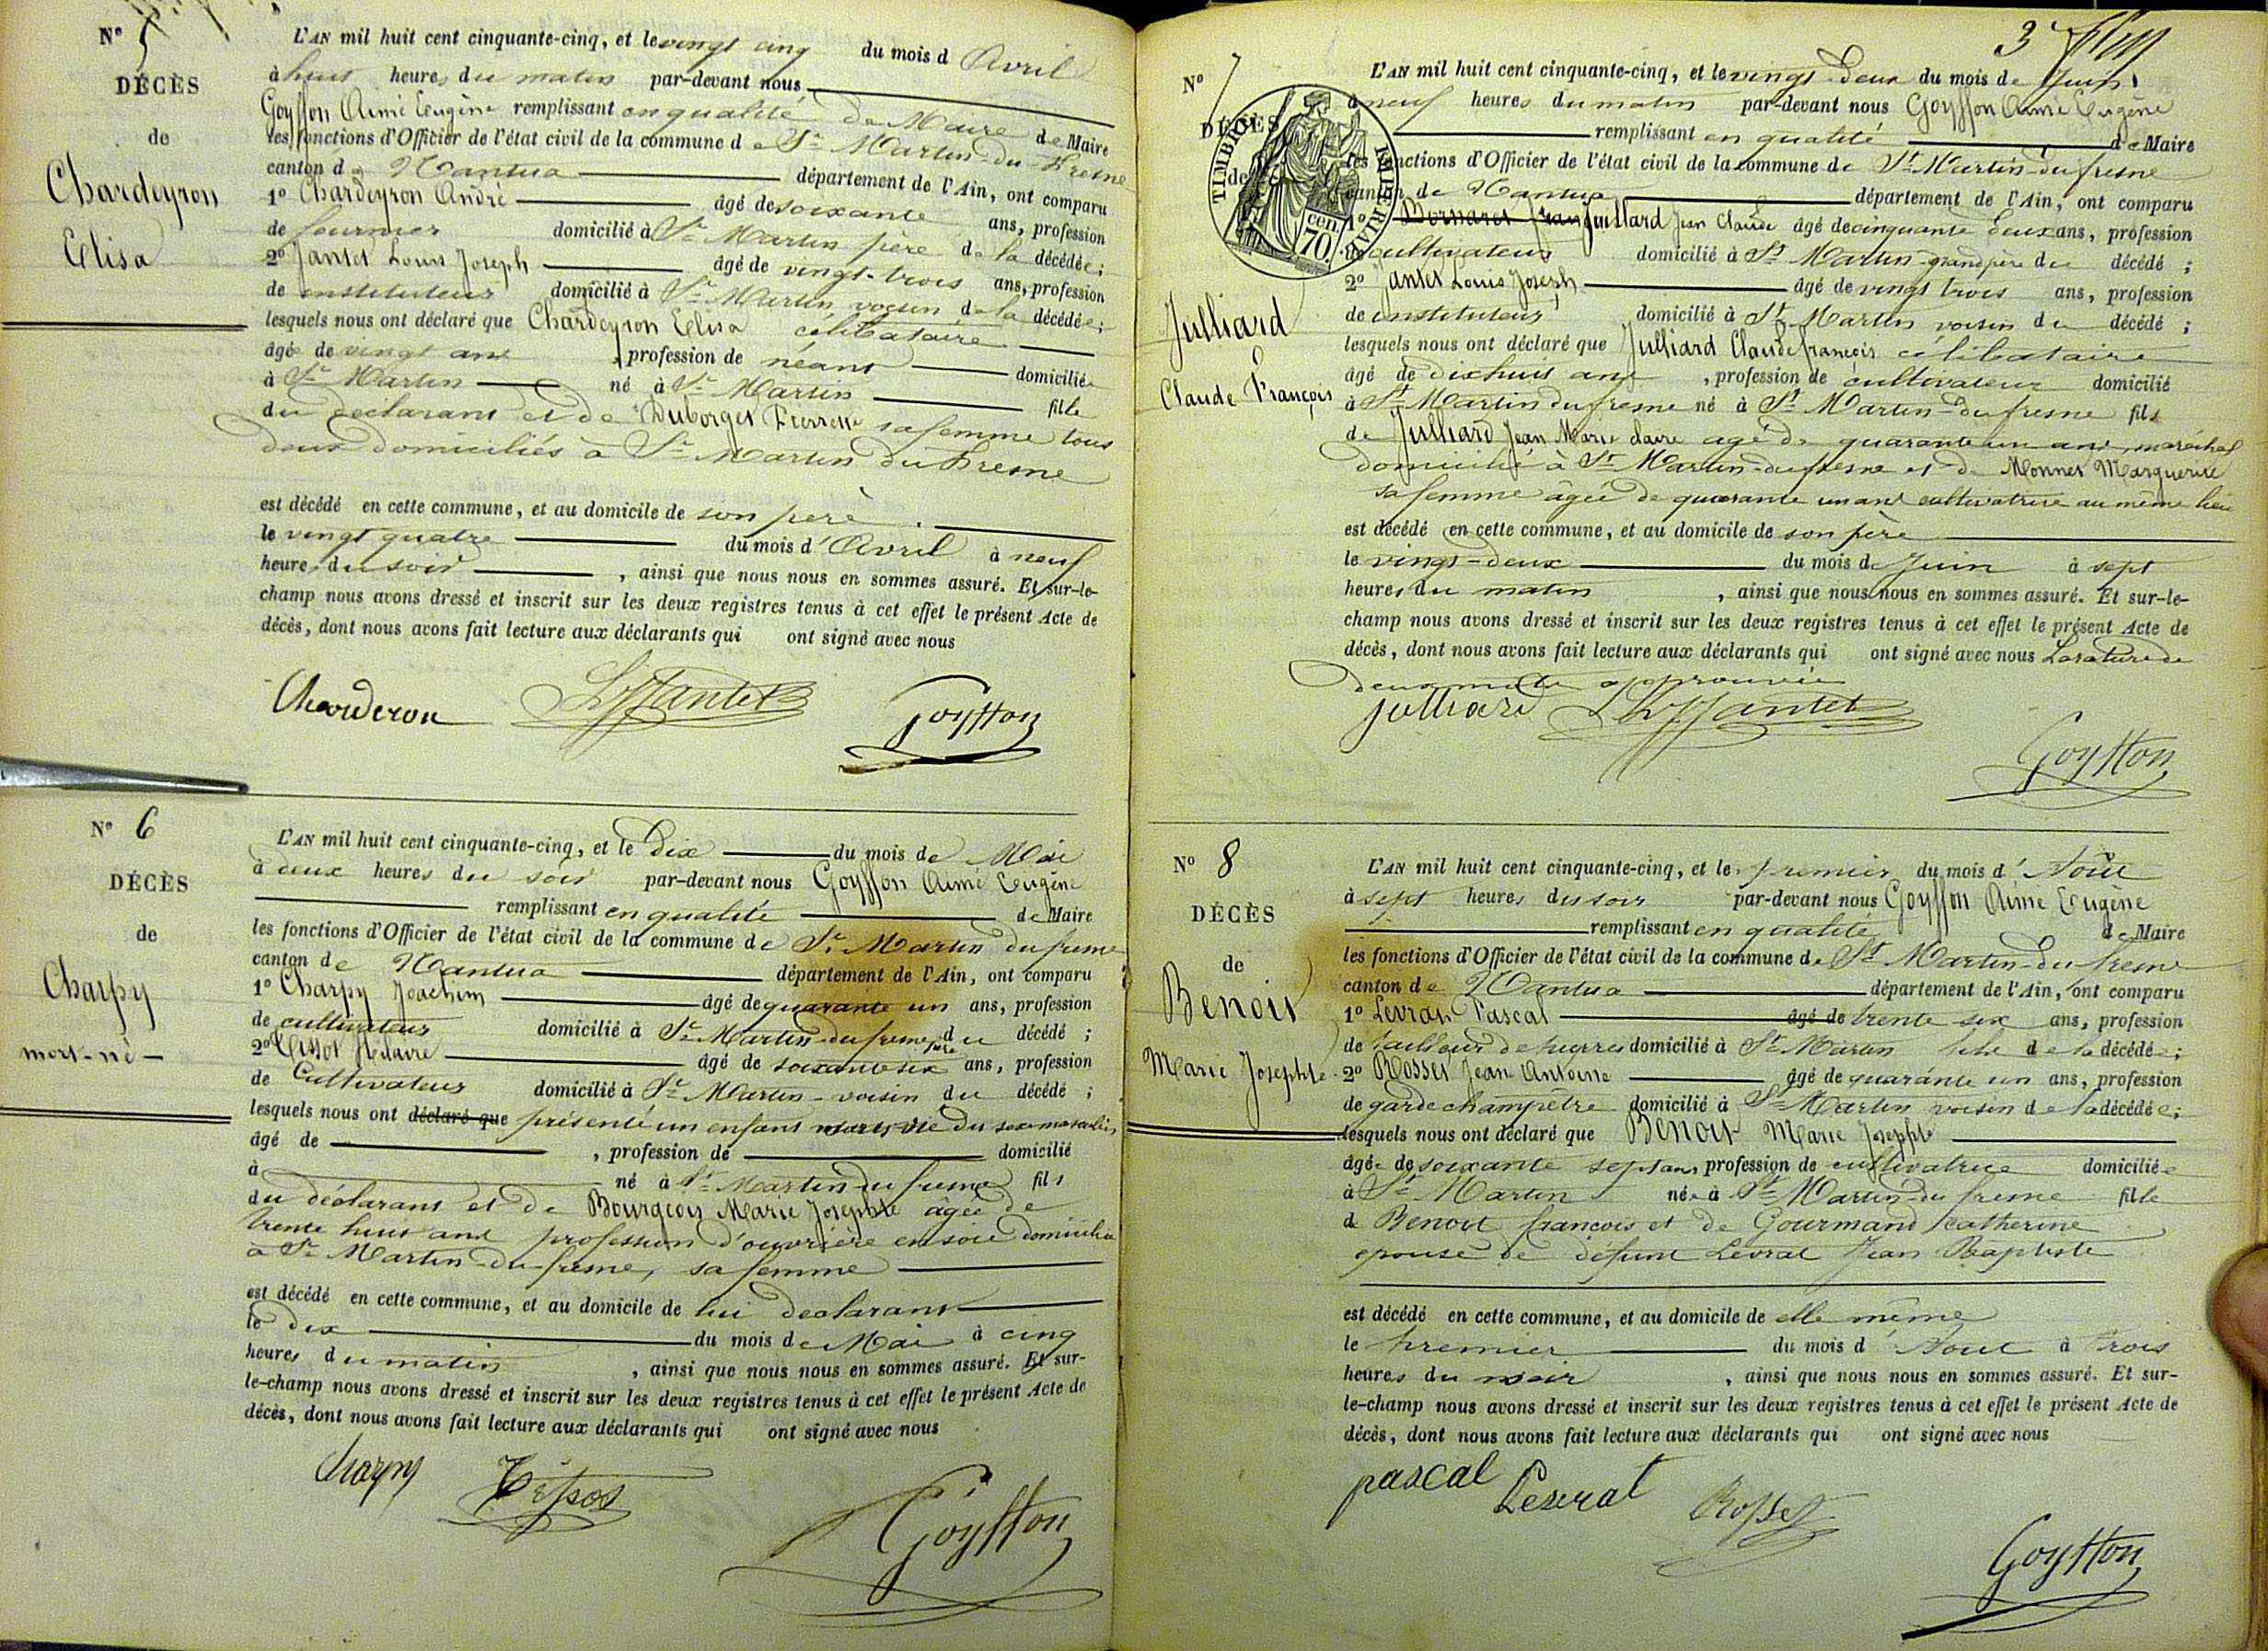 N° 5
DÉCÈS
de
Chardeyron
Elisa
L'AN mil huit cent cinquante-cinq, et le vingt cinq du mois d'Avril
à huit heures du matin par-devant nous
Goyffon Aimé Eugène remplissant en qualité de Maire de Maire
les fonctions d'Officier de l'état civil de la commune de St Martin-du-Fresne
canton de Nantua département de l'Ain, ont comparu
1° Chardeyron André âgé de soixante ans, profession
de domicilié à St Martin père de la décédée;
2° Jantet Louis Joseph âgé de vingt-trois ans, profession
de instituteur domicilié à St Martin voisin de la décédée;
lesquels nous ont déclaré que Chardeyron Elisa célibataire
âgé de vingt ans, profession de néant domiciliée
à St Martin né à St Martin fille
du déclarant et de Duborget Pierrette sa femme tous
deux domiciliés à St Martin du Fresne
est décédé en cette commune, et au domicile de son père
le vingt quatre du mois d'Avril à neuf
heures du soir, ainsi que nous nous en sommes assuré. Et sur-le-
champ nous avons dressé et inscrit sur les deux registres tenus à cet effet le présent Acte de
décès, dont nous avons fait lecture aux déclarants qui ont signé avec nous
Charderon Jantet Goyffon
N° 6
DÉCÈS
de
Charpy
mort-né
L'AN mil huit cent cinquante-cinq, et le dix du mois de Mai
à deux heures du soir par-devant nous Goyffon Aimé Eugène
remplissant en qualité de Maire
les fonctions d'Officier de l'état civil de la commune de St Martin du fresne
canton de Nantua département de l'Ain, ont comparu
1° Charpy Joachim âgé de quarante un ans, profession
de cultivateur domicilié à St Martin-du fresne père du décédé;
2° Tissot Hilaire âgé de soixante six ans, profession
de Cultivateur domicilié à St Martin - voisin du décédé;
lesquels nous ont déclaré que présenté un enfant mort-né du sexe masculin,
âgé de, profession de domicilié
à né à St Martin-du fresne fils
du déclarant et de Bourgeois Marie Josephte âgée de
trente huit ans profession d'ouvrière en soie domiciliée
à St Martin-du-fresne, sa femme
est décédé en cette commune, et au domicile de lui déclarant
le dix du mois de Mai à cinq
heures du matin, ainsi que nous nous en sommes assuré. Et sur-
le-champ nous avons dressé et inscrit sur les deux registres tenus à cet effet le présent Acte de
décès, dont nous avons fait lecture aux déclarants qui ont signé avec nous
Charpy Tissot Goyffon
3
N° 7
DÉCÈS
de
TIMBRE IMPÉRIAL
70 cen.
Julliard
Claude François
L'AN mil huit cent cinquante-cinq, et le vingt-deux du mois de Juin
à neuf heures du matin par-devant nous Goyffon Aimé Eugène
remplissant en qualité de Maire
les fonctions d'Officier de l'état civil de la commune de St Martin-du fresne
canton de Nantua département de l'Ain, ont comparu
1° Juillard Jean Claude âgé de cinquante deux ans, profession
de cultivateur domicilié à St Martin-grand père du décédé;
2° Jantet Louis Joseph âgé de vingt trois ans, profession
de instituteur domicilié à St Martin voisin du décédé;
lesquels nous ont déclaré que Julliard Claude françois célibataire
âgé de dix huit ans, profession de cultivateur domicilié
à St Martin du fresne né à St Martin-du fresne fils
de Julliard Jean Marie claire agé de quarante un ans, maréchal
domicilié à St Martin-du fresne et de Monnet Marguerite
sa femme âgée de quarante un ans cultivatrice au même lieu
est décédé en cette commune, et au domicile de son père
le vingt-deux du mois de Juin à sept
heures du matin, ainsi que nous nous en sommes assuré. Et sur-le-
champ nous avons dressé et inscrit sur les deux registres tenus à cet effet le présent Acte de
décès, dont nous avons fait lecture aux déclarants qui ont signé avec nous La rature de
deux mots approuvée
julliard Jantet Goyffon
N° 8
DÉCÈS
de
Benoit
Marie Josephte
L'AN mil huit cent cinquante-cinq, et le premier du mois d'Août
à sept heures du soir par-devant nous Goyffon Aimé Eugène
remplissant en qualité de Maire
les fonctions d'Officier de l'état civil de la commune de St Martin-du fresne
canton de Nantua département de l'Ain, ont comparu
1° Levrat Pascal âgé de trente six ans, profession
de tailleur de pierres domicilié à St Martin fils de la décédée;
2° Rosset Jean Antoine âgé de quarante un ans, profession
de garde champêtre domicilié à St Martin voisin de la décédée;
lesquels nous ont déclaré que Benoit Marie Josephte
âgée de soixante sept ans, profession de cultivatrice domiciliée
à St Martin née à St Martin-du fresne fille
de Benoit françois et de Gourmand catherine
epouse de défunt Levrat Jean Baptiste
est décédé en cette commune, et au domicile de elle même
le premier du mois d'Aout à trois
heures du soir, ainsi que nous nous en sommes assuré. Et sur-
le-champ nous avons dressé et inscrit sur les deux registres tenus à cet effet le présent Acte de
décès, dont nous avons fait lecture aux déclarants qui ont signé avec nous
pascal Leverat Rosset
Goyffon